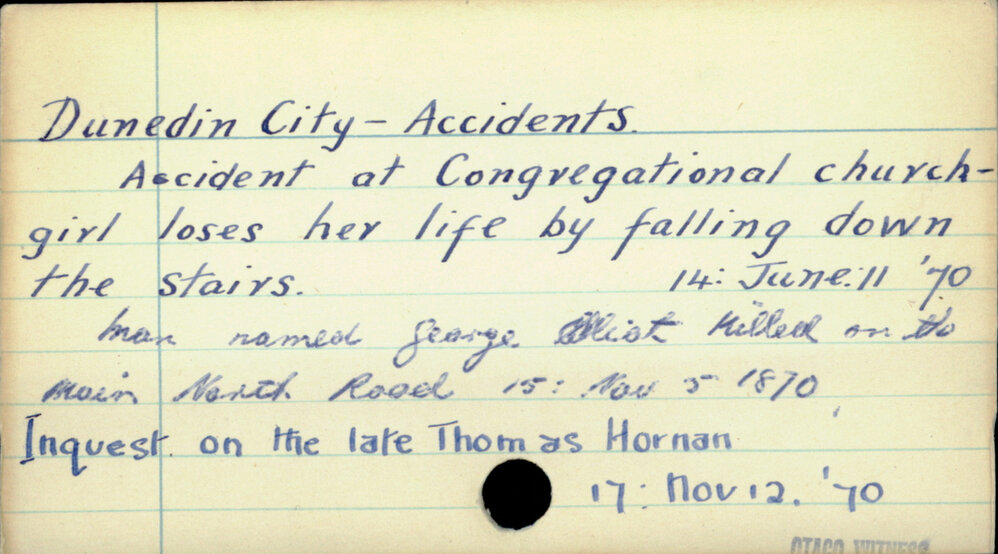 Dunedin City - Accidents.
Accident at Congregational church-
girl loses her life by falling down
the stairs. 14: June: 11 '70
Man named George Elliot killed on the
main North Road 15: Nov 5 1870
Inquest on the late Thomas Hornan
17: Nov 12. '70
OTAGO WITNESS